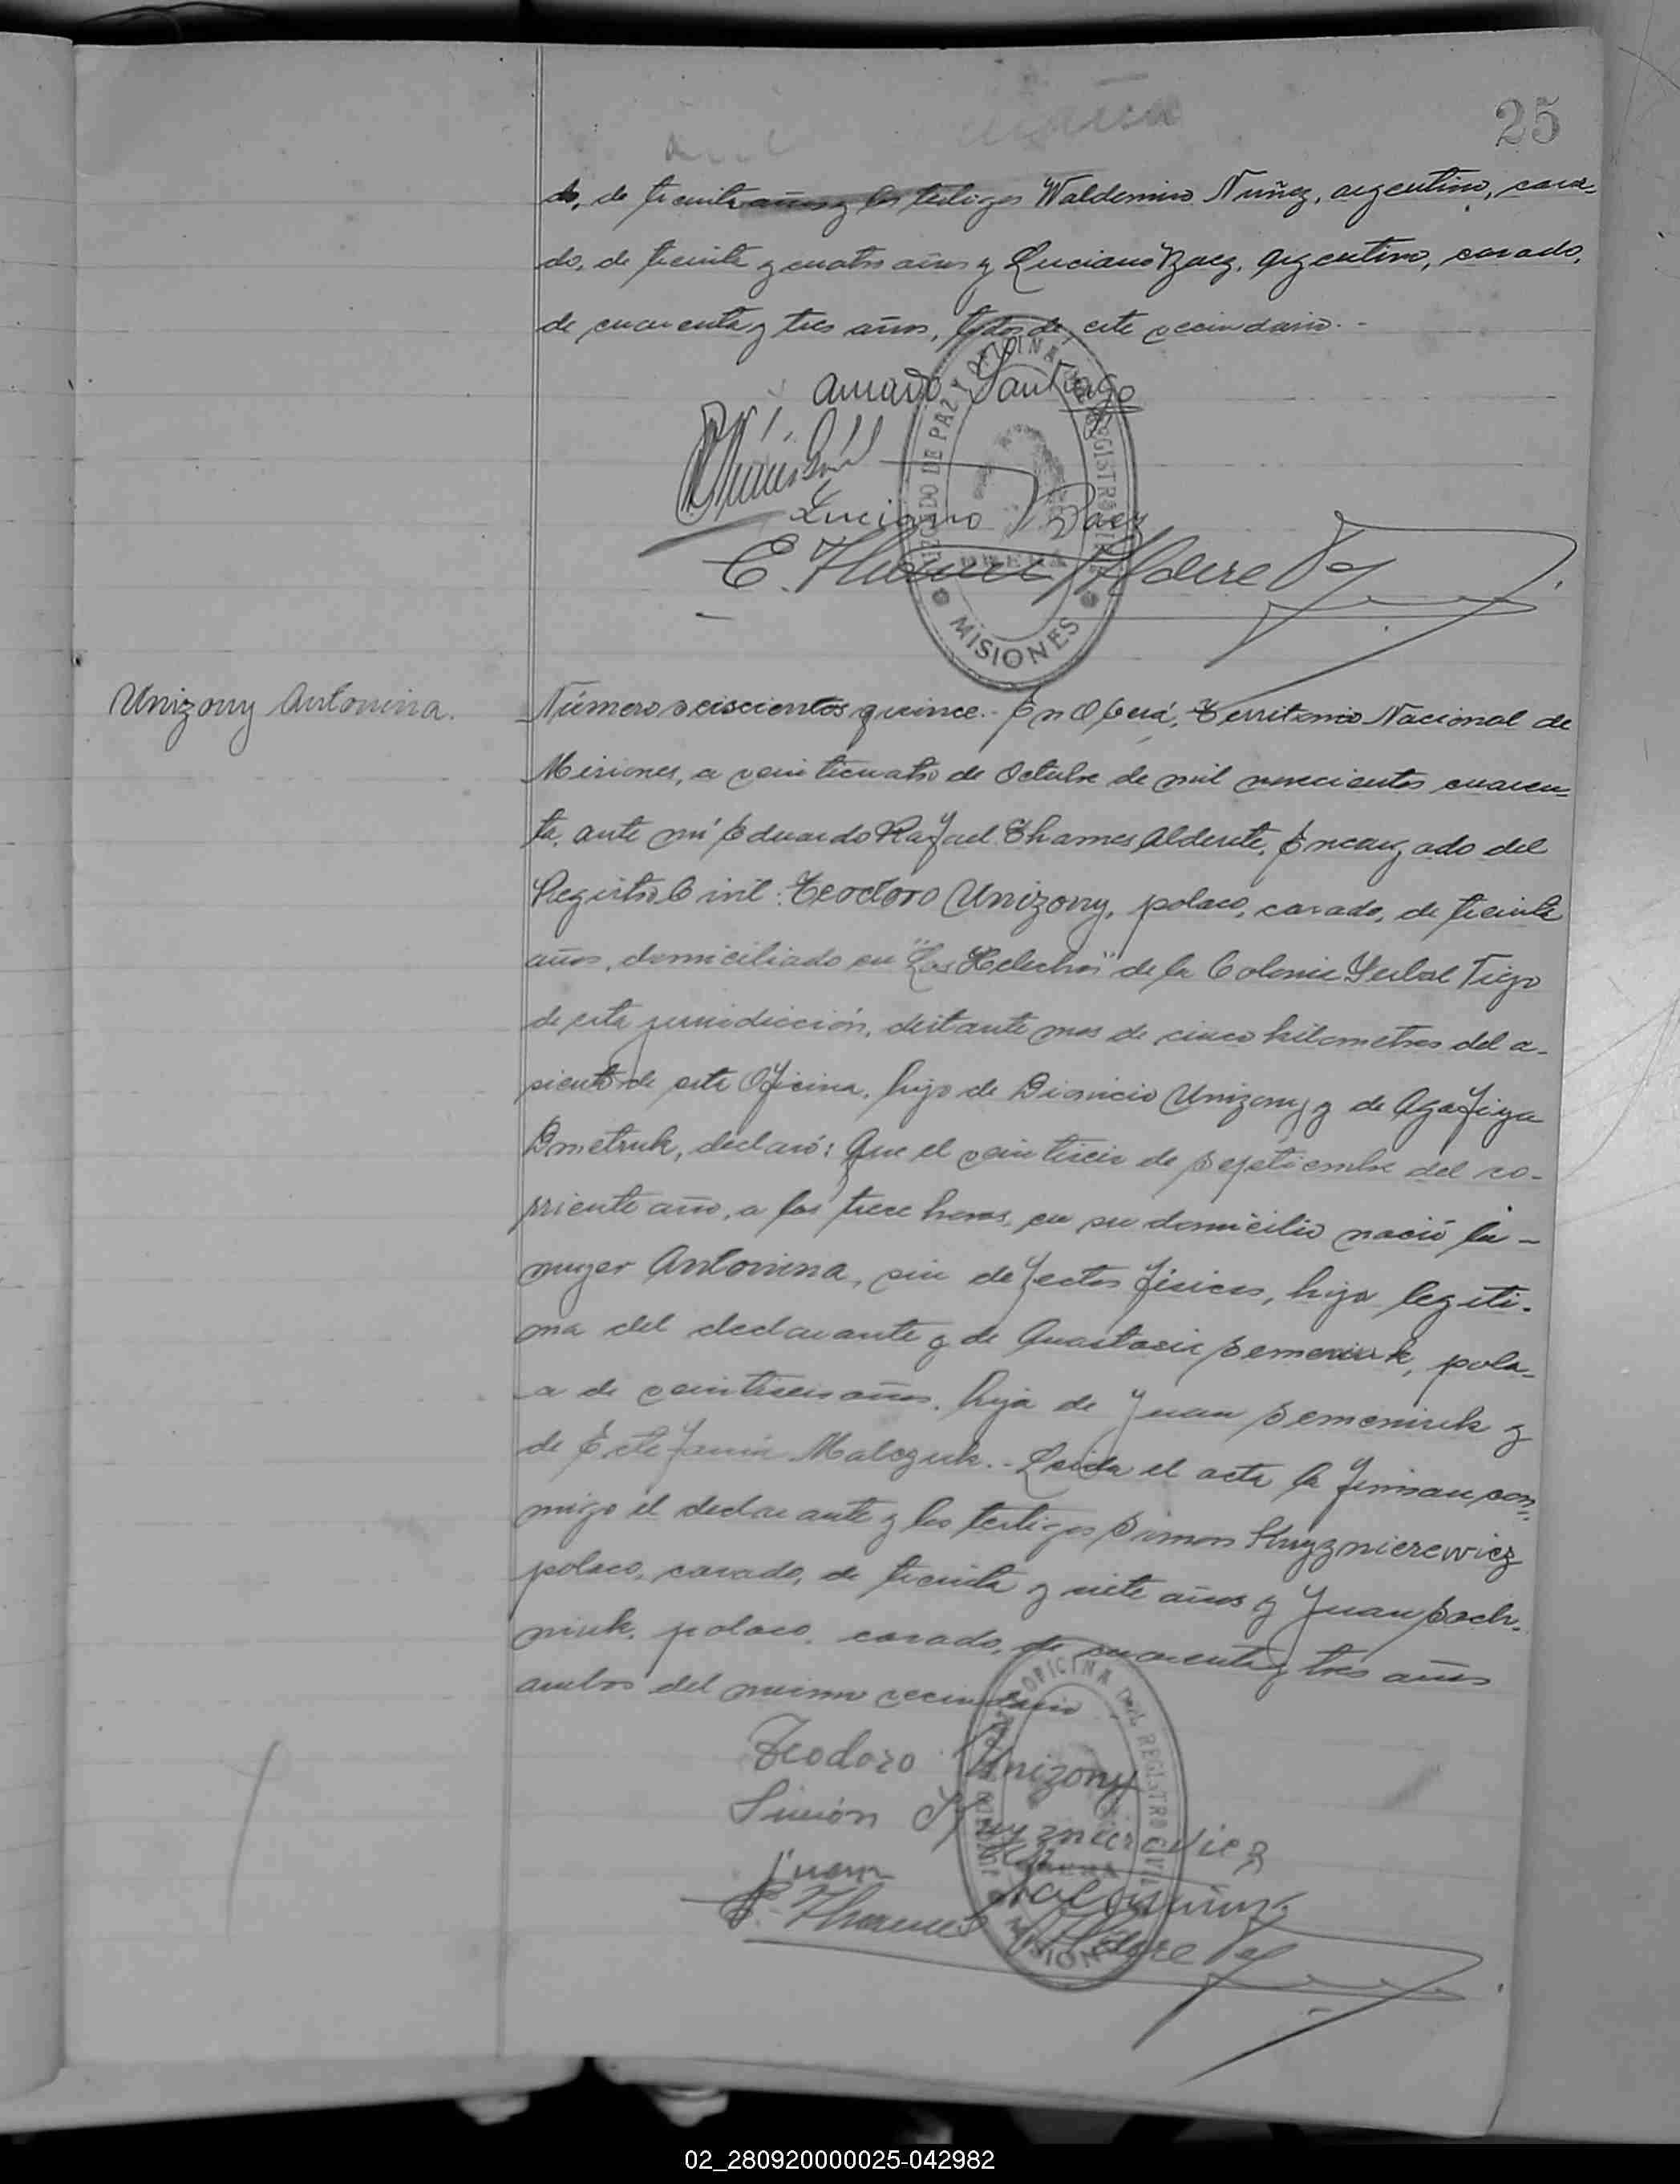 25
do, de treinta años y los testigos Waldomiro Nuñez, argentino, casa-
do, de treinta y cuatro años y Luciano Baez, argentino, casado,
de cuarenta y tres años, todos de este vecindario.-
Amado Santiago
Luciano Baez
E. Thames Alderete
JUZGADO DE PAZ Y OFICINA DEL REGISTRO CIVIL
OBERA
MISIONES
Unizony Antonina.
Número seiscientos quince.- En Oberá, Territorio Nacional de
Misiones, a veinticuatro de Octubre de mil novecientos cuaren-
ta, ante mí Eduardo Rafael Thames Alderete, Encargado del
Registro Civil: Teodoro Unizony, polaco, casado, de treinta
años, domiciliado en "Los Helechos" de la Colonia Yerbal Viejo
de esta jurisdicción, distante mas de cinco kilometros del a-
siento de esta Oficina, hijo de Dionicio Unizony y de Agafiya
Dmetruk, declaró: Que el veintiseis de Septiembre del co-
rriente año, a las trece horas, en su domicilio nació la-
mujer Antonina, sin defectos físicos, hija legíti-
ma del declarante y de Anastasia Semeniuk, pola-
a de veintiseis años, hija de Juan Semeniuk y
de Estefania Malczuk.- Leida el acta la firman con-
migo el declarante y los testigos Simon Kruyznierewicz
polaco, casado, de treinta y siete años y Juan Sach-
niuk, polaco, casado, de cuarenta y tres años
ambos del mismo vecindario
Teodoro Unizony
Simón
Juan
E. Thames Alderete
OFICINA DEL REGISTRO CIVIL
MISIONES
02_280920000025-042982